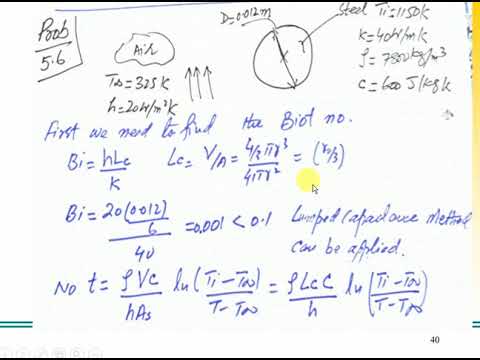 Prob 5.6
Air
T∞ = 325 K
h = 20 W/m²K
D = 0.012 m
r
Steel Ti = 1150 K
k = 40 W/mK
ρ = 7800 kg/m³
C = 600 J/kg K
First we need to find the Biot no.
Bi = hLc/k Lc = V/A = (4/3 πr³)/(4πr²) = (r₀/3)
Bi = (20(0.012)/6)/40 = 0.001 < 0.1 Lumped Capacitance Method
can be applied.
No t = ρVC/hAs ln(Ti-T∞/T-T∞) = ρLcC/h ln(Ti-T∞/T-T∞)
40